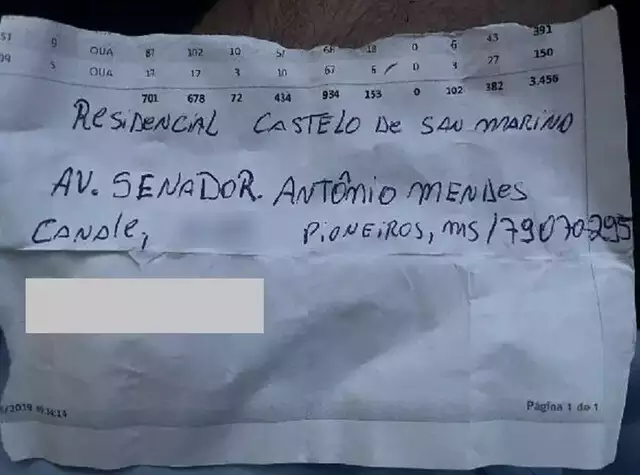 51 9 QUA 87 102 10 57 68 18 0 6 43 391
09 5 QUA 17 17 3 10 67 6 0 3 27 150
701 678 72 434 934 153 0 102 382 3.456
RESIDENCIAL CASTELO DE SAN MARINO
AV. SENADOR. ANTÔNIO MENDES
CANALE, PIONEIROS, MS/79070-295
/2019 14:14
Página 1 de 1